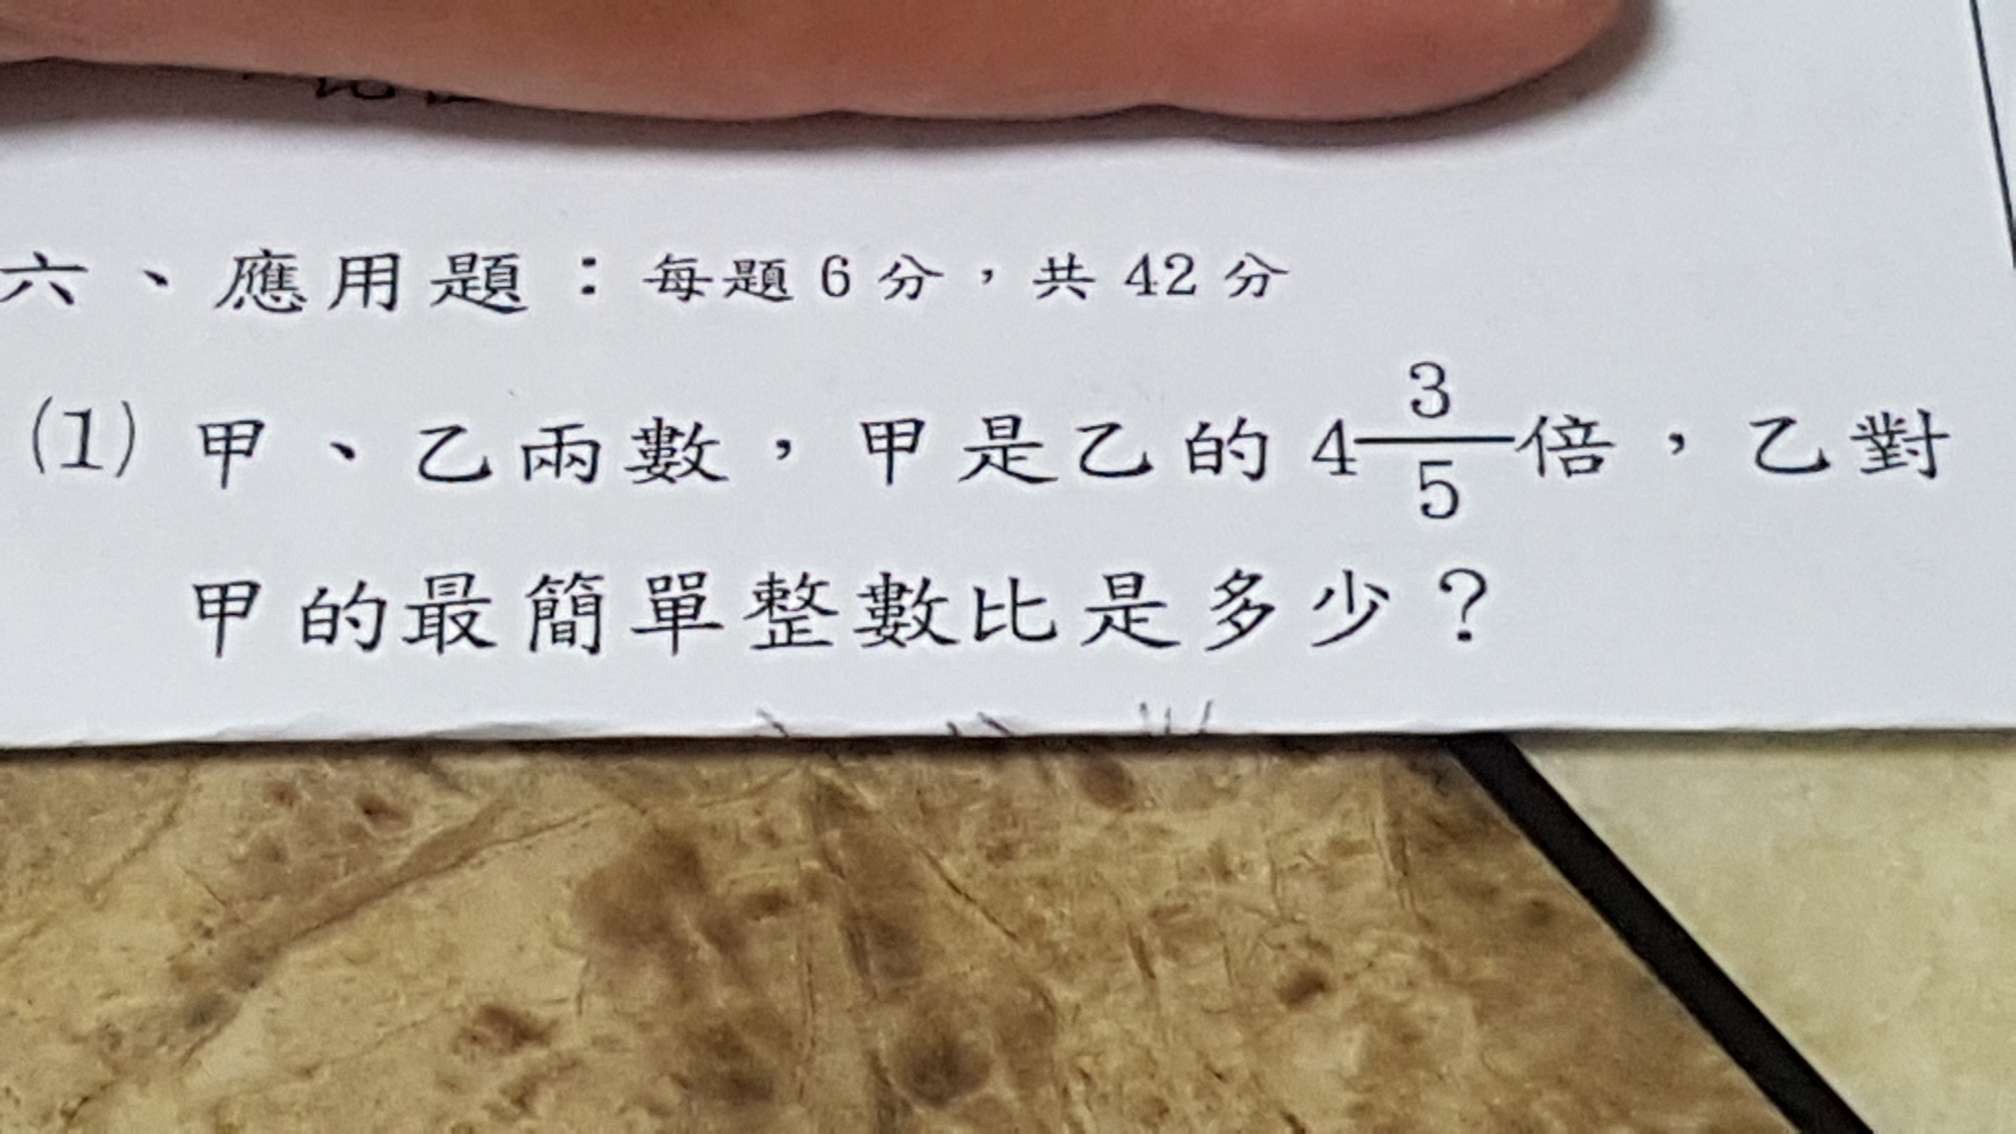 六、應用題：每題6分，共42分
(1)甲、乙兩數，甲是乙的4 3/5倍，乙對
甲的最簡單整數比是多少？